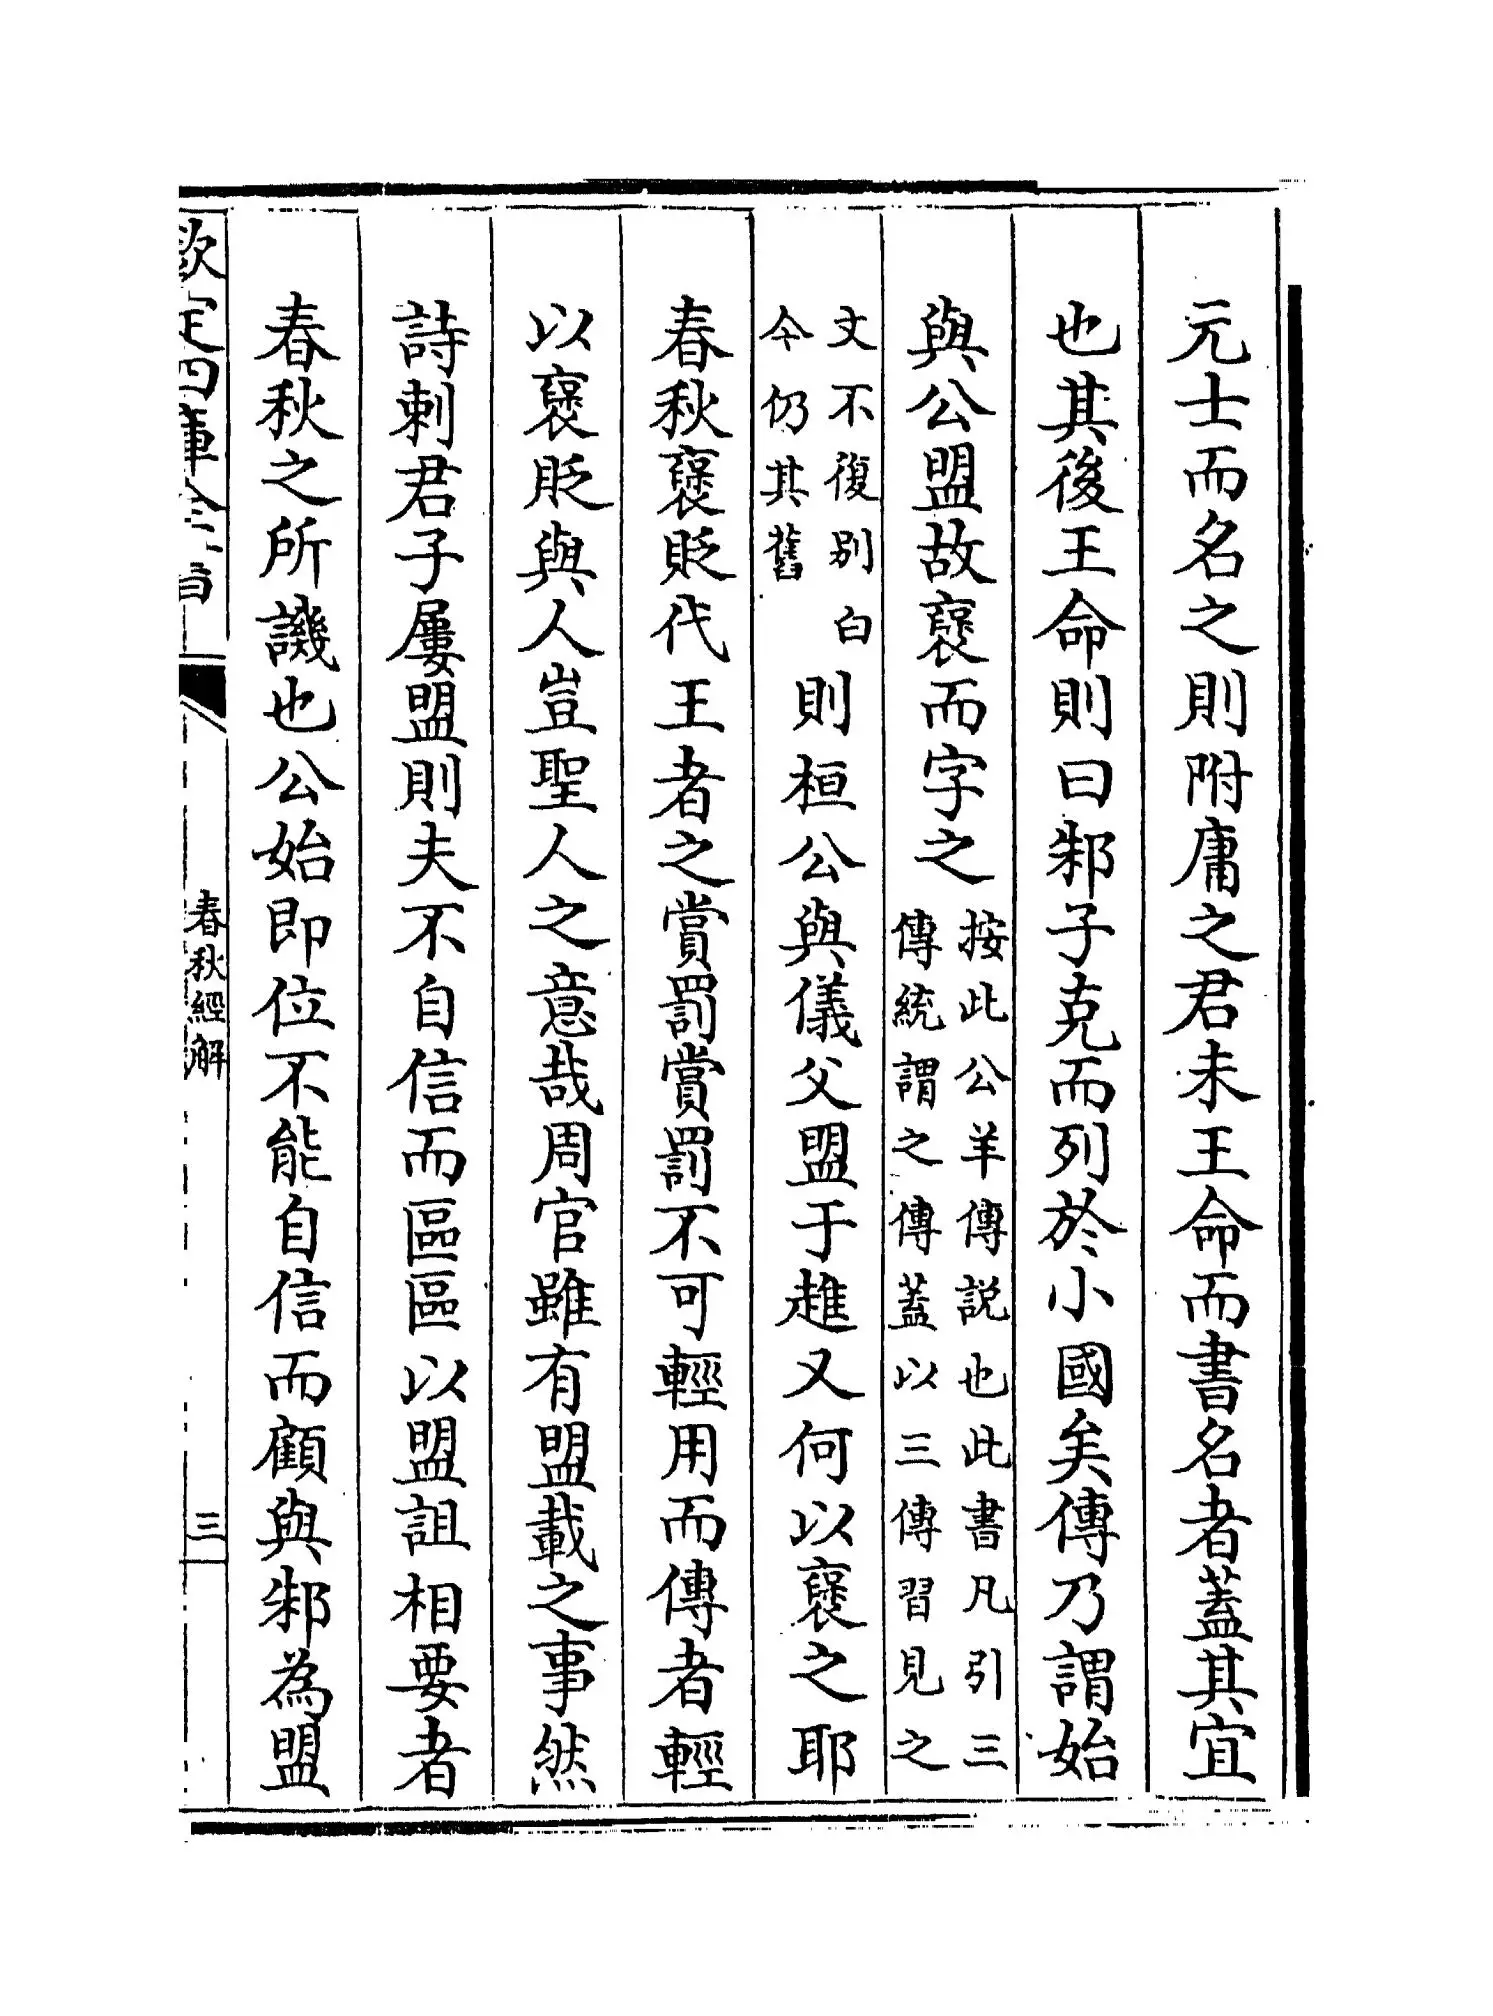 元士而名之則附庸之君未王命而書名者蓋其宜
也其後王命則曰邾子克而列於小國矣傳乃謂始
與公盟故褒而字之按此公羊傳説也此書凡引三
傳統謂之傳蓋以三傳習見之
文不復別白
今仍其舊
則桓公與儀父盟于趡又何以褒之耶
春秋褒貶代王者之賞罰賞罰不可輕用而傳者輕
以褒貶與人豈聖人之意哉周官雖有盟載之事然
詩刺君子屢盟則夫不自信而區區以盟詛相要者
春秋之所譏也公始即位不能自信而顧與邾為盟
欽定四庫全書
春秋經解
三